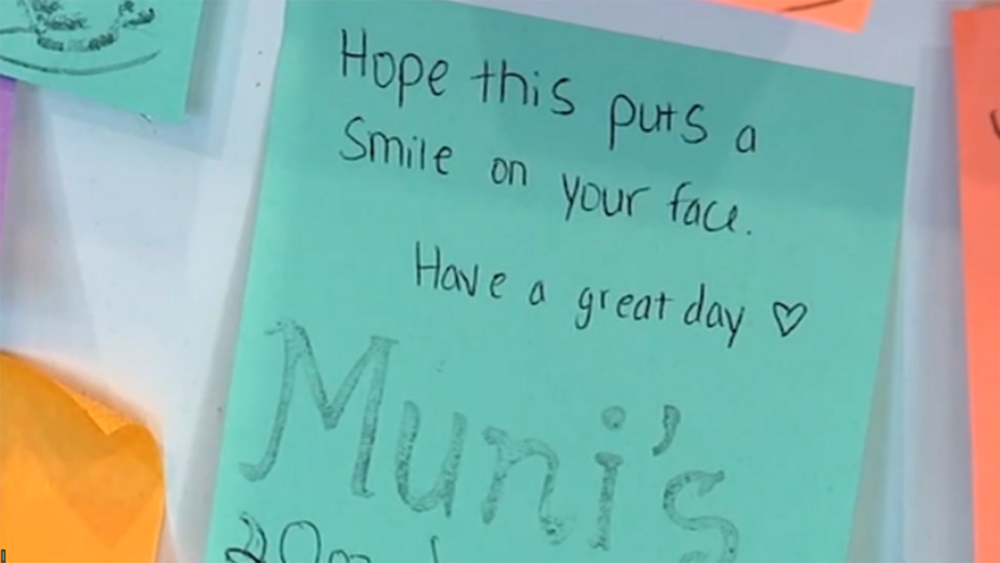 Hope this puts a
Smile on your face.
Have a great day ♡
Muni's